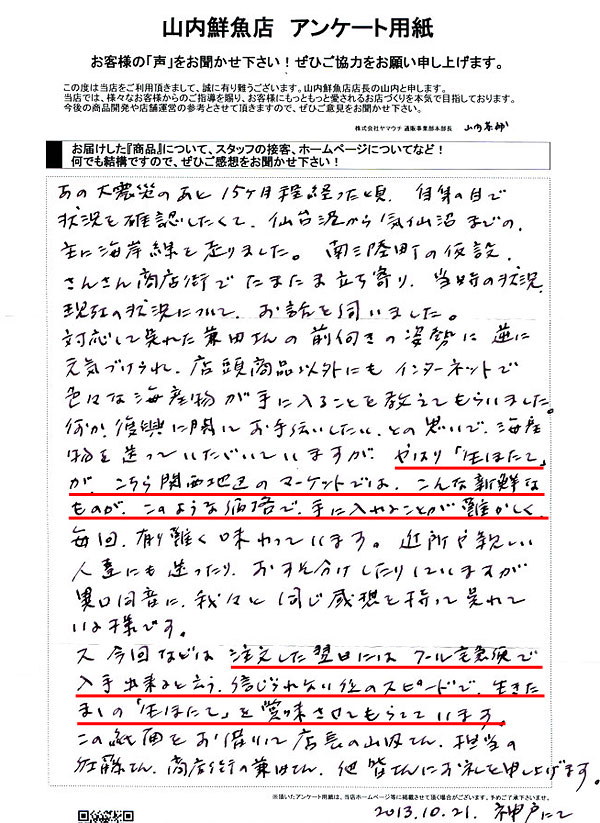 山内鮮魚店 アンケート用紙
お客様の「声」をお聞かせ下さい！ぜひご協力をお願い申し上げます。
この度は当店をご利用頂きまして、誠に有り難うございます。山内鮮魚店店長の山内と申します。
当店では、様々なお客様からのご指導を賜り、お客様にもっともっと愛されるお店づくりを本気で目指しております。
今後の商品開発や店舗運営の参考とさせて頂きますので、ぜひご意見をお聞かせ下さい。
株式会社ヤマウチ 通販事業部本部長 山内
お届けした『商品』について、スタッフの接客、ホームページについてなど！
何でも結構ですので、ぜひご感想をお聞かせ下さい！
あの大震災のあと 15ヶ月程経った頃、自身の目で
状況を確認したくて、仙台港から気仙沼までの、
主に海岸線を走りました。南三陸町の仮設、
さんさん商店街でたまたま立ち寄り、当時の状況、
現在の状況について、お話を伺いました。
対応して呉れた兼田さんの前向きの姿勢に逆に
元気づけられ、店頭商品以外にもインターネットで
色々な海産物が手に入ることを教えてもらいました。
何か、復興に関してお手伝いしたい、との思いで、海産
物を送っていただいていますが、やはり「生ほたて」
が、こちら関西地区のマーケットでは、こんな新鮮な
ものが、このような価格で、手に入れることが難かしく、
毎回、有り難く味わっています。近所や親しい
人達にも送ったり、おすそ分けしたりしていますが
異口同音に、我々と同じ感想を持って呉れて
いる様です。
又 今回などは 注文した翌日には クール宅急便で
入手出来ると云う、信じられない位のスピードで、生きた
ままの「生ほたて」を賞味させてもらっています。
この紙面をお借りして店長の山内さん、担当の
佐藤さん、商店街の兼田さん、他皆さんにお礼を申し上げます。
※頂いたアンケート用紙は、当店ホームページ等に掲載させて頂く場合がございます。予めご了承下さいませ。
2013.10.21. 神戸にて